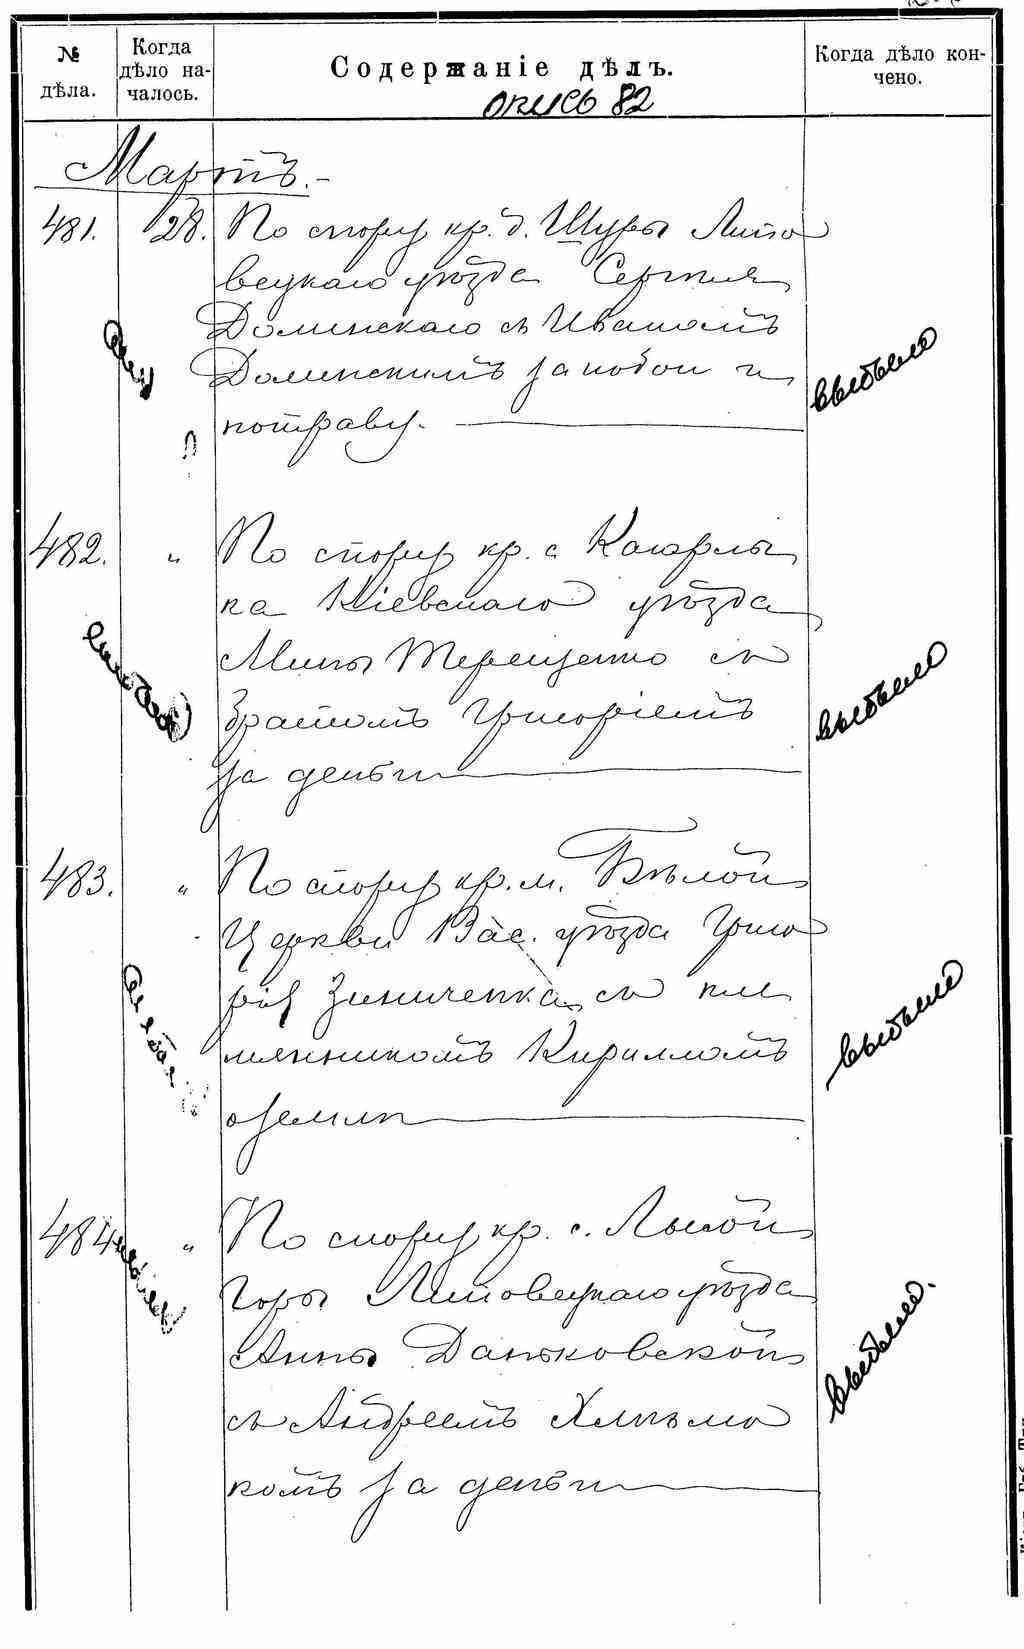 № дѣла.
Когда дѣло на-
чалось.
Содержаніе дѣлъ.
Когда дѣло кон-
чено.
опись 82
Мартъ.-
481. 28. По спору кр. д. Щуры Липо
вецкаго уѣзда Сергѣя
Долинскаго съ Иваномъ
Долинскимъ за побои и
потраву.
выбыло
482. " По спору кр. с Кагарлы
ка Кіевскаго уѣзда
Мины Терещенко съ
братомъ Григоріемъ
за деньги
выбыло
483. " По спору кр. м. Бѣлой
Церкви Вас. уѣзда Григо
рія Зиниченка съ пле
мянникомъ Кирилломъ
о землѣ
выбыло
484 " По спору кр. с. Лысой
Горы Липовецкаго уѣзда
Анны Даньковской
съ Андреемъ
комъ за деньги
выбыло.